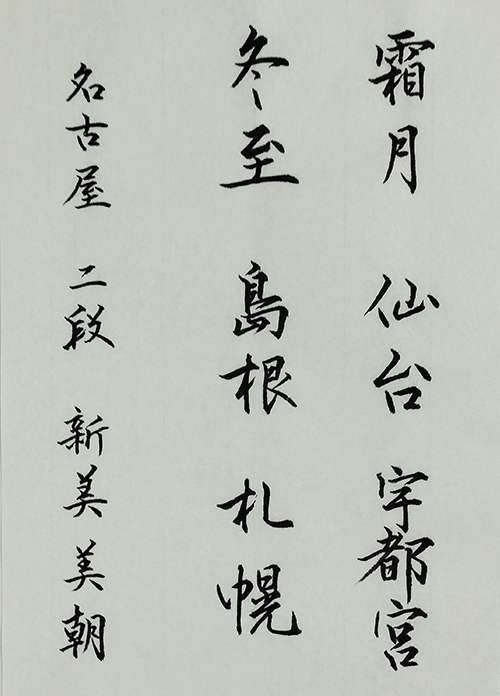 霜月 仙台 宇都宮
冬至 島根 札幌
名古屋 二段 新美美朝